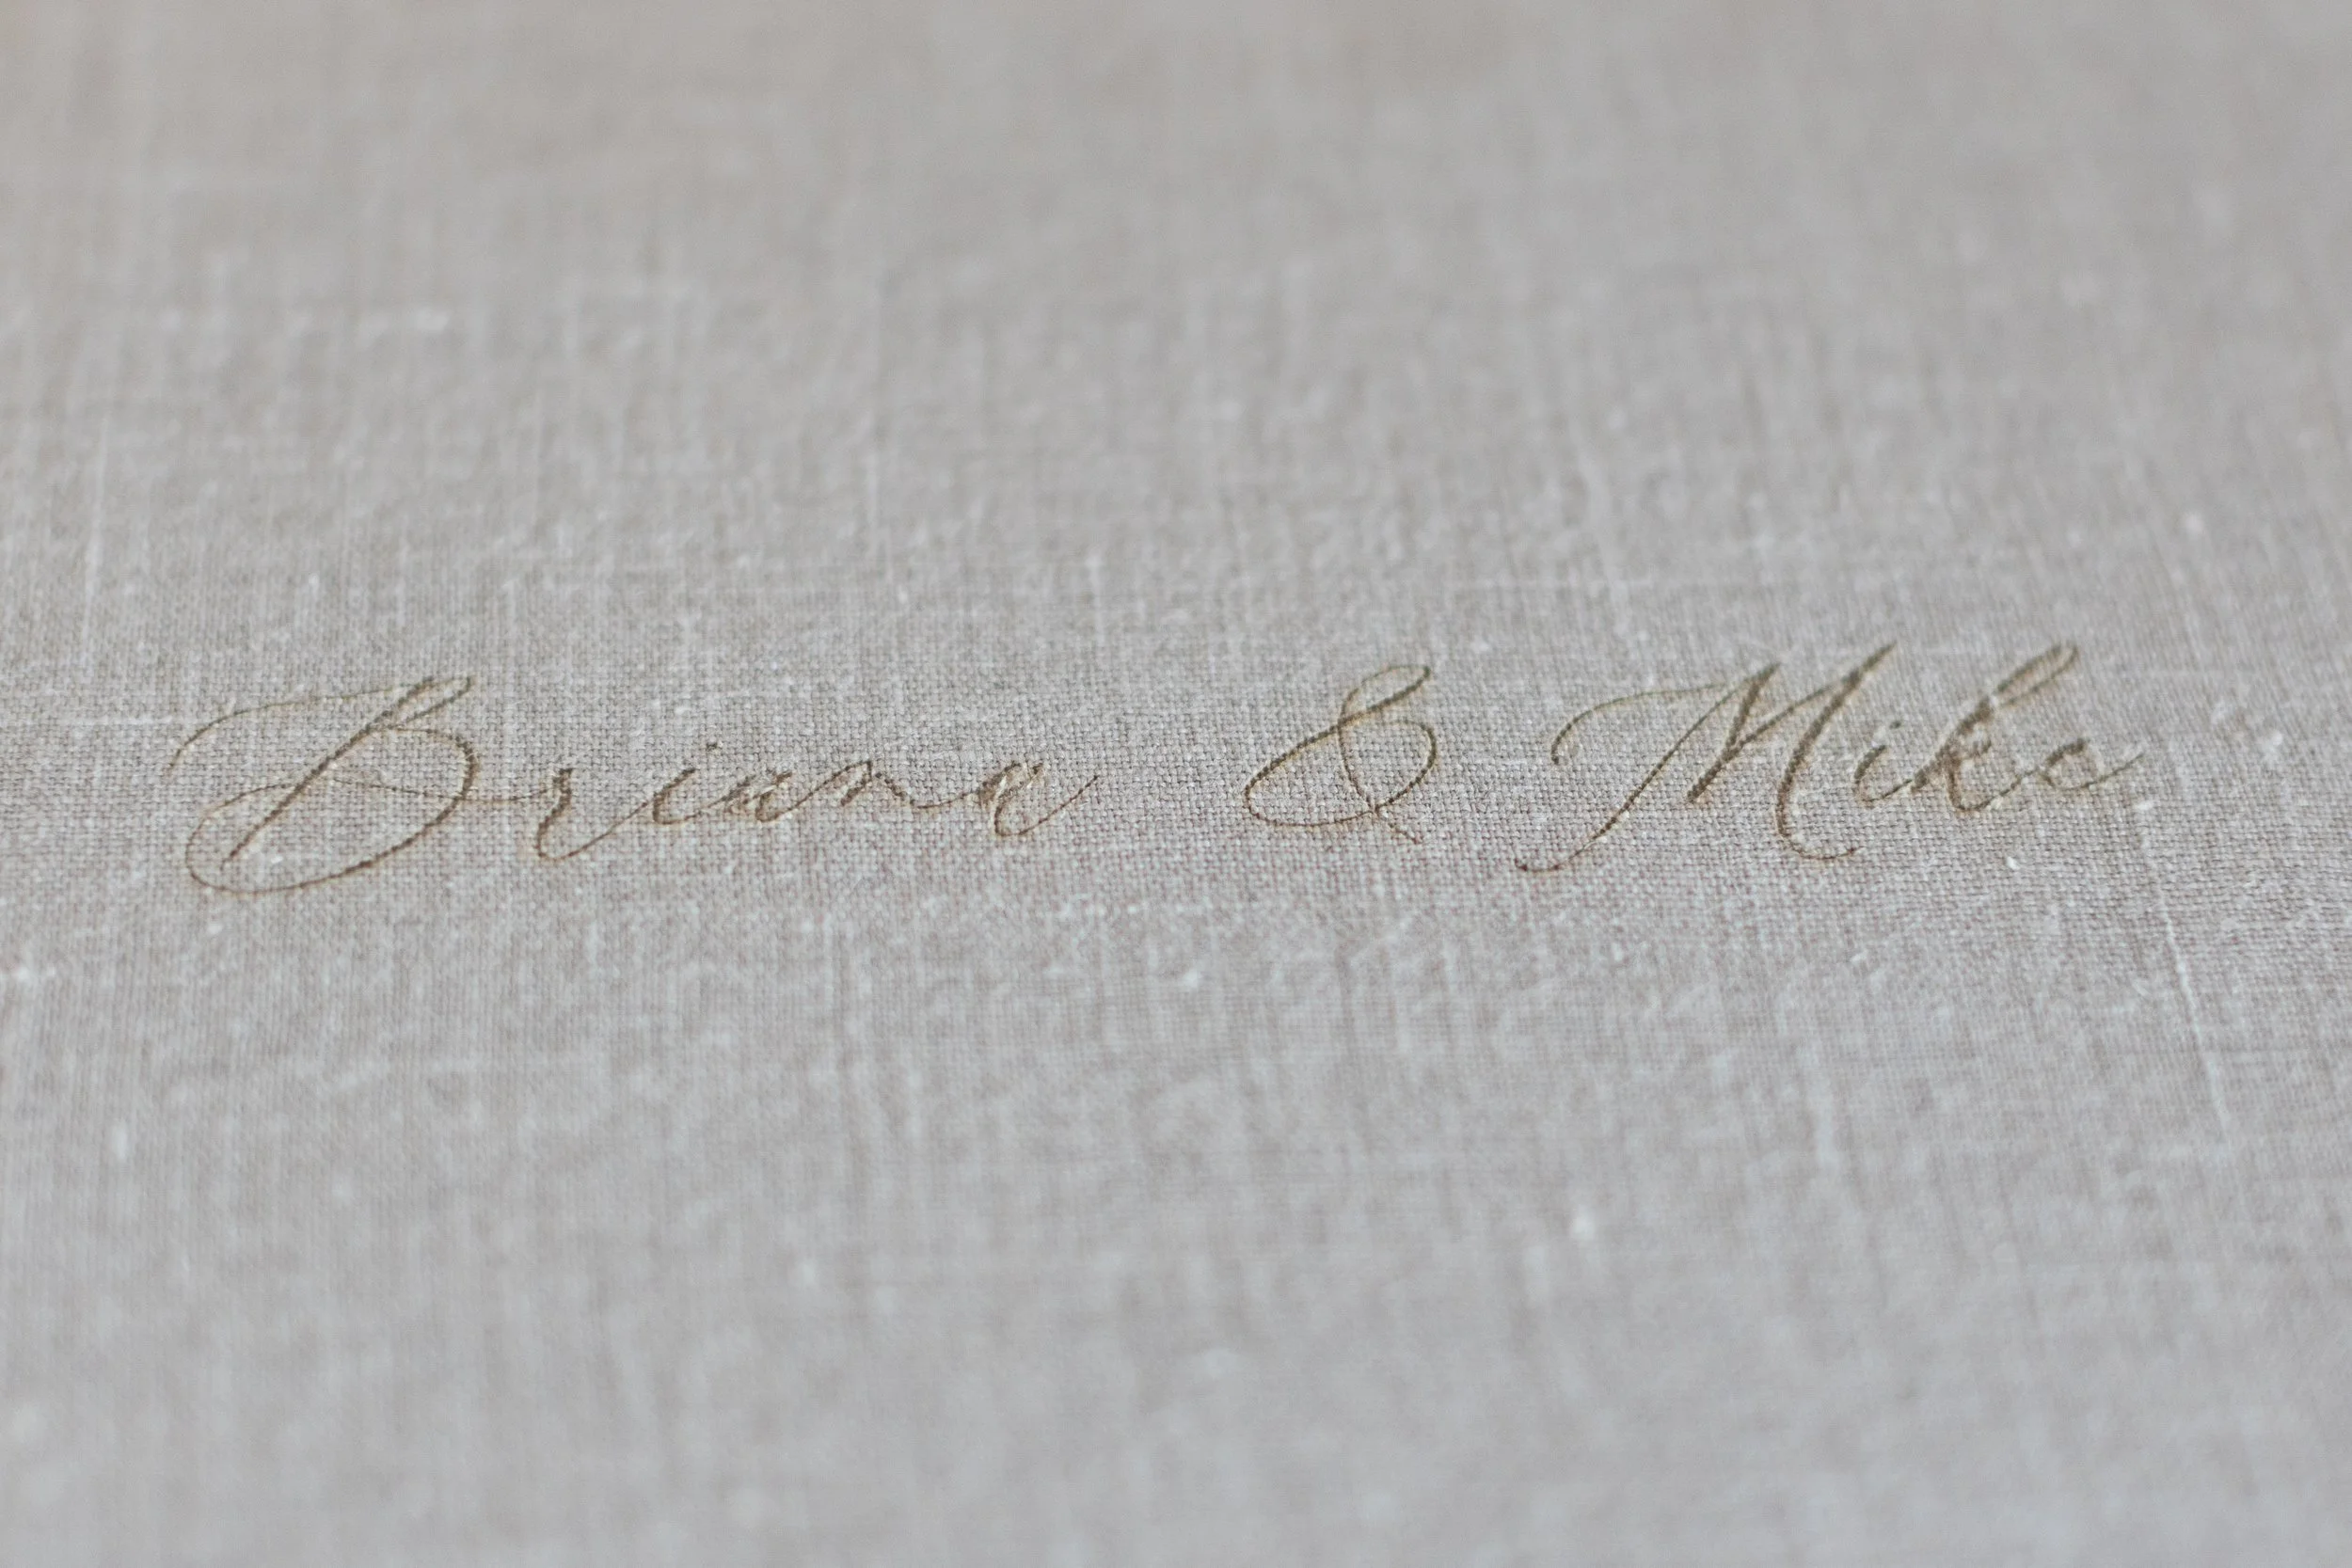 Briana & Mike